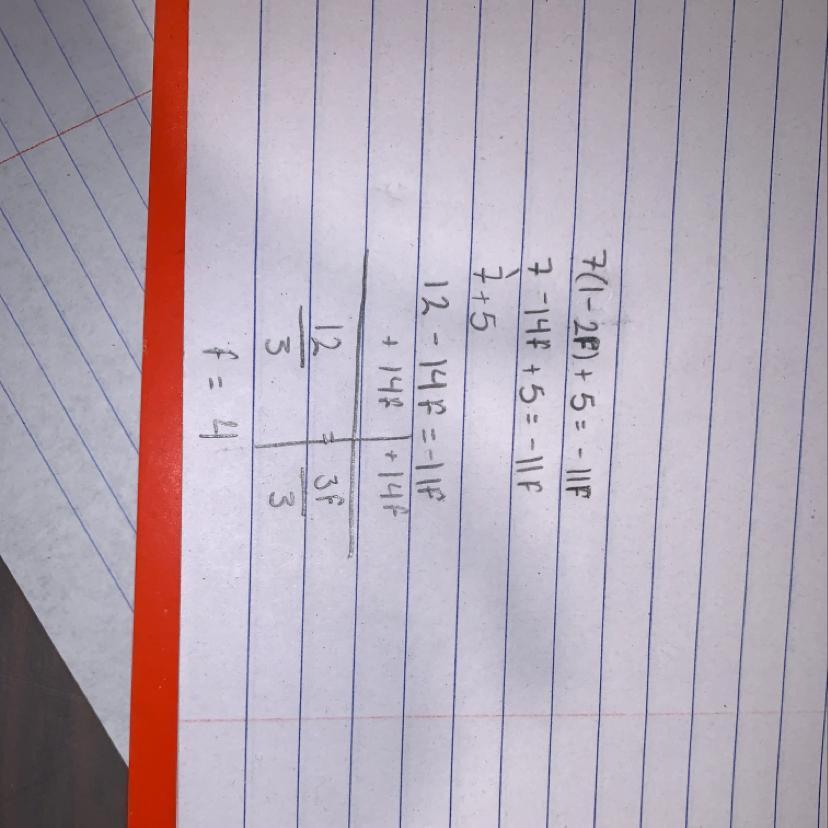 7(1-2f)+5=-11f
7-14f+5=-11f
7+5
12-14f=-11f
+14f +14f
12 = 3f
3 3
f = 4